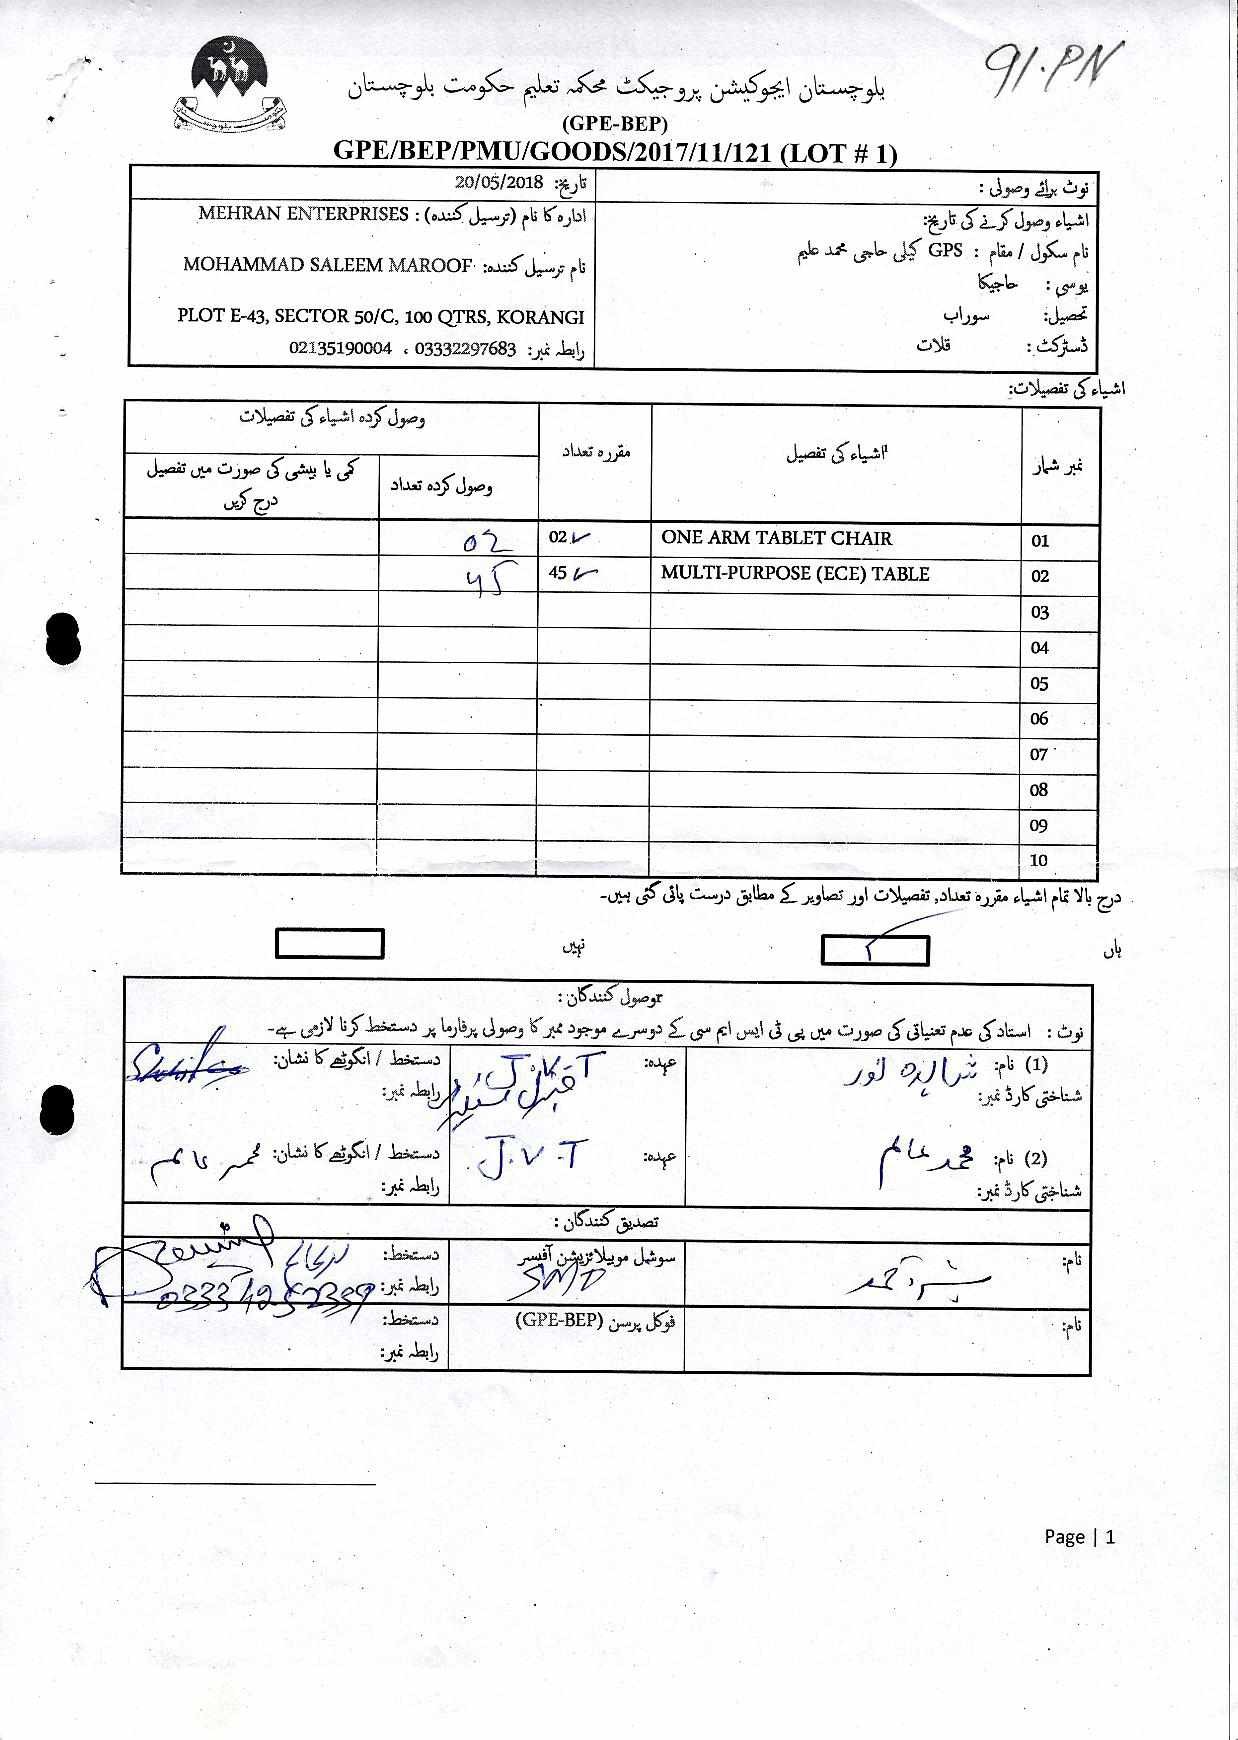 91.PN
بلوچستان ایجوکیشن پروجیکٹ محکمہ تعلیم حکومت بلوچستان
(GPE-BEP)
GPE/BEP/PMU/GOODS/2017/11/121 (LOT # 1)
نوٹ برائے وصولی :
اشیاء وصول کرنے کی تاریخ:
نام سکول / مقام : GPS کیلی حاجی محمد علیم
یوسی : حاجیکا
تحصیل: سوراب
ڈسٹرکٹ : قلات
تاریخ: 20/05/2018
ادارہ کا نام (ترسیل کنندہ) : MEHRAN ENTERPRISES
نام ترسیل کنندہ: MOHAMMAD SALEEM MAROOF
PLOT E-43, SECTOR 50/C, 100 QTRS, KORANGI
رابطہ نمبر: 03332297683 ، 02135190004
اشیاء کی تفصیلات:
نمبر شمار اشیاء کی تفصیل مقررہ تعداد وصول کردہ اشیاء کی تفصیلات
وصول کردہ تعداد کمی یا بیشی کی صورت میں تفصیل درج کریں
01 ONE ARM TABLET CHAIR 02 02
02 MULTI-PURPOSE (ECE) TABLE 45 45
03
04
05
06
07
08
09
10
درج بالا تمام اشیاء مقررہ تعداد, تفصیلات اور تصاویر کے مطابق درست پائی گئی ہیں۔
ہاں نہیں
وصول کنندگان :
نوٹ : استاد کی عدم تعیناتی کی صورت میں پی ٹی ایس ایم سی کے دوسرے موجود ممبر کا وصولی پرفارما پر دستخط کرنا لازمی ہے۔
(1) نام: عہدہ: دستخط / انگوٹھے کا نشان:
شناختی کارڈ نمبر: رابطہ نمبر:
(2) نام: محمد عالم عہدہ: J.V.T دستخط / انگوٹھے کا نشان: محمد عالم
شناختی کارڈ نمبر: رابطہ نمبر:
تصدیق کنندگان :
نام: سوشل موبیلائزیشن آفیسر دستخط:
SMO رابطہ نمبر:
نام: فوکل پرسن (GPE-BEP) دستخط:
رابطہ نمبر:
Page | 1